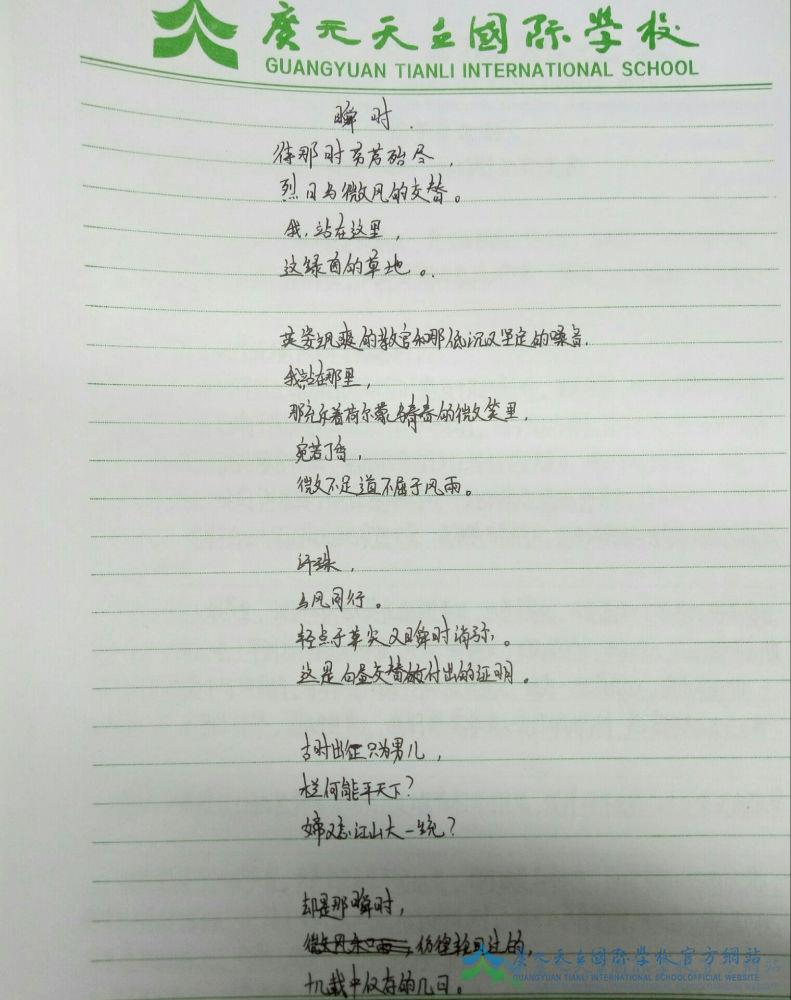 廣元天立國际學校
GUANGYUAN TIANLI INTERNATIONAL SCHOOL
瞬时.
待那时芳若殆尽，
烈日与微风的交替。
我，站在这里，
这绿茵的草地。
英姿飒爽的教官和那低沉又坚定的嗓音.
我站在那里，
那充斥着荷尔蒙与青春的微笑里，
宛若丁香，
微不足道不屈于风雨。
汗珠，
与风同行。
轻点于草尖又瞬时消弥。
这是白昼交替的付出的证明。
古时出征只为男儿，
何能平天下？
江山大一统？
却是那瞬时，
彷徨过的，
十几载中仅存的几日。
廣元天立國际學校官方網站
GUANGYUAN TIANLI INTERNATIONAL SCHOOLOFFICIAL WEBSITE